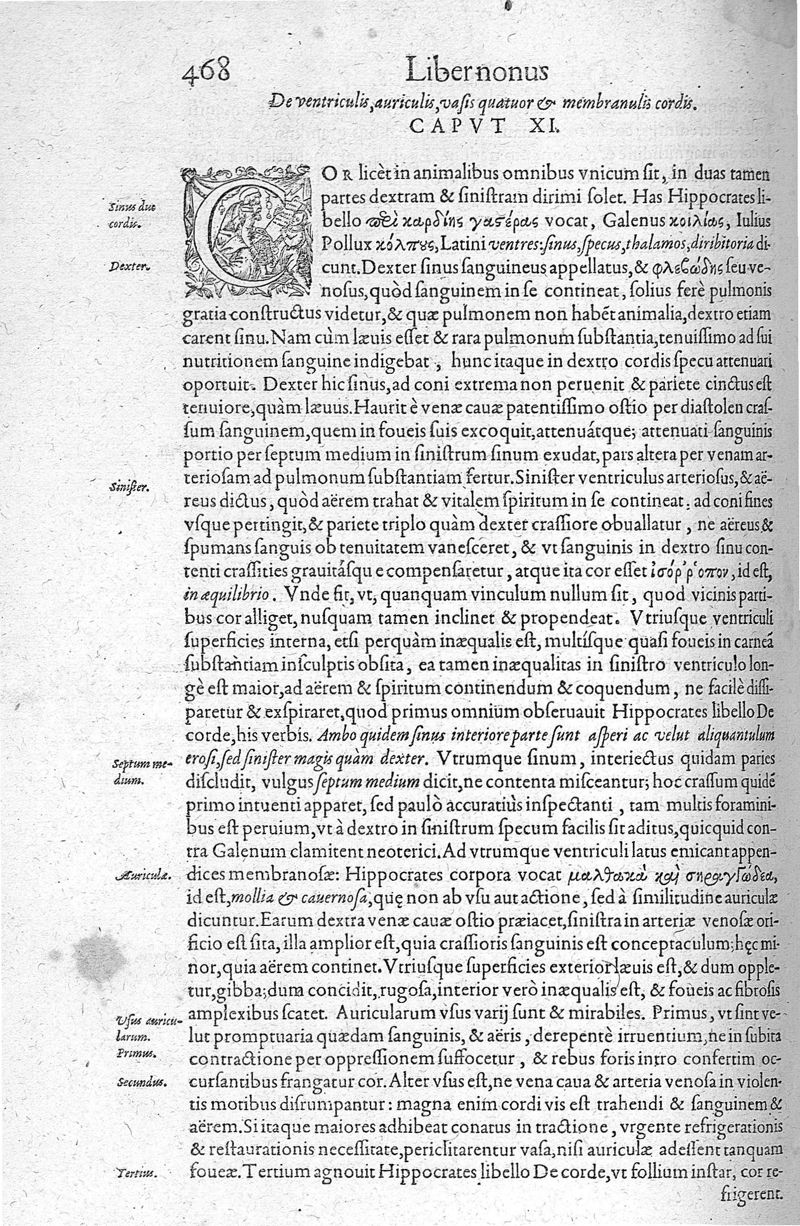 468
Liber nonus
De ventriculis, auriculis, vasis quatuor & membranulis cordis.
CAPVT XI.
COR licèt in animalibus omnibus vnicum sit, in duas tamen
partes dextram & sinistram dirimi solet. Has Hippocrates li-
bello περὶ καρδίης γαστέρας vocat, Galenus κοιλίας, Iulius
Pollux κόλπους, Latini ventres: sinus, specus, thalamos, diribitoria di-
cunt. Dexter sinus sanguineus appellatus, & φλεβώδης seu ve-
nosus, quòd sanguinem in se contineat, solius ferè pulmonis
gratia constructus videtur, & quæ pulmonem non habēt animalia, dextro etiam
carent sinu. Nam cùm læuis esset & rara pulmonum substantia, tenuissimo ad sui
nutritionem sanguine indigebat, hunc itaque in dextro cordis specu attenuari
oportuit. Dexter hic sinus, ad coni extrema non peruenit & pariete cinctus est
tenuiore, quàm læuus. Haurit è venæ cauæ patentissimo ostio per diastolen cras-
sum sanguinem, quem in foueis suis excoquit, attenuátque; attenuati sanguinis
portio per septum medium in sinistrum sinum exudat, pars altera per venam ar-
teriosam ad pulmonum substantiam fertur. Sinister ventriculus arteriosus, & aë-
reus dictus, quòd aërem trahat & vitalem spiritum in se contineat: ad coni fines
vsque pertingit, & pariete triplo quàm dexter crassiore obuallatur, ne aëreus &
spumans sanguis ob tenuitatem vanesceret, & vt sanguinis in dextro sinu con-
tenti crassities grauitásque compensaretur, atque ita cor esset ἰσόῤῥοπον, id est,
in æquilibrio. Vnde fit, vt, quanquam vinculum nullum sit, quod vicinis parti-
bus cor alliget, nusquam tamen inclinet & propendeat. Vtriusque ventriculi
superficies interna, etsi perquàm inæqualis est, multísque quasi foueis in carneā
substantiam insculptis obsita, ea tamen inæqualitas in sinistro ventriculo lon-
gè est maior, ad aërem & spiritum continendum & coquendum, ne facilè dissi-
paretur & exspiraret, quod primus omnium obseruauit Hippocrates libello De
corde, his verbis. Ambo quidem sinus interiore parte sunt asperi ac velut aliquantulum
erosi, sed sinister magis quàm dexter. Vtrumque sinum, interiectus quidam paries
discludit, vulgus septum medium dicit, ne contenta misceantur; hoc crassum quidē
primo intuenti apparet, sed paulò accuratiùs inspectanti, tam multis foramini-
bus est peruium, vt à dextro in sinistrum specum facilis sit aditus, quicquid con-
tra Galenum clamitent neoterici. Ad vtrumque ventriculi latus emicant appen-
dices membranosæ: Hippocrates corpora vocat μαλθακὰ καὶ σηραγγώδεα,
id est, mollia & cauernosa, quę non ab vsu aut actione, sed à similitudine auriculæ
dicuntur. Earum dextra venæ cauæ ostio præiacet, sinistra in arteriæ venosæ ori-
ficio est sita, illa amplior est, quia crassioris sanguinis est conceptaculum; hęc mi-
nor, quia aërem continet. Vtriusque superficies exterior læuis est, & dum opple-
tur, gibba; dum concidit, rugosa, interior verò inæqualis est, & foueis ac fibrosis
amplexibus scatet. Auricularum vsus varij sunt & mirabiles. Primus, vt sint ve-
lut promptuaria quædam sanguinis, & aëris, derepentè irruentium, ne in subita
contractione per oppressionem suffocetur, & rebus foris intro confertim oc-
cursantibus frangatur cor. Alter vsus est, ne vena caua & arteria venosa in violen-
tis motibus disrumpantur: magna enim cordi vis est trahendi & sanguinem &
aërem. Si itaque maiores adhibeat conatus in tractione, vrgente refrigerationis
& restaurationis necessitate, periclitarentur vasa, nisi auriculæ adessent tanquam
foueæ. Tertium agnouit Hippocrates libello De corde, vt follium instar, cor re-
frigerent.
Sinus duo
cordis.
Dexter.
Sinister.
Septum me-
dium.
Auriculæ.
Vsus auricu-
larum.
Primus.
Secundus.
Tertius.